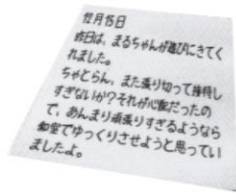 12月15日
昨日は、まるちゃんが遊びにきてく
れました。
ちゃとらん、また張り切って接待し
すぎないか?それが心配だったの
で、あんまり頑張りすぎるようなら
和室でゆっくりさせようと思ってい
ましたよ。